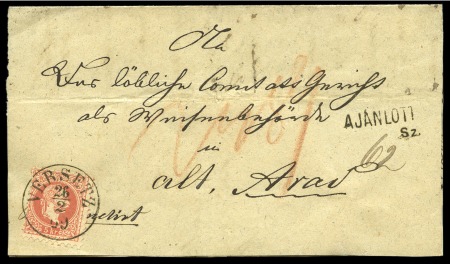 An
Das löbliche Comitatsgericht
als Waisenbehörde
in
alt. Arad
AJÁNLOTT
Sz.
62
VERSETZ
26
2